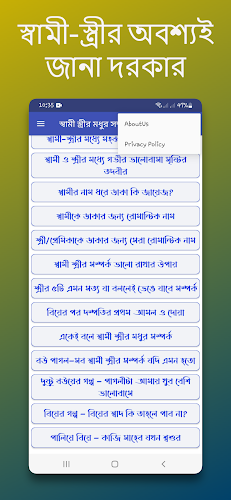 স্বামী-স্ত্রীর অবশ্যই
জানা দরকার
10:35
47%
স্বামী স্ত্রীর মধুর
AboutUs
Privacy Policy
স্বামী-স্ত্রীর মধ্যে
স্বামী ও স্ত্রীর মধ্যে গভীর ভালোবাসা সৃষ্টির
তদবীর
স্বামীর নাম ধরে ডাকা কি জায়েজ?
স্বামীকে ডাকার জন্য রোমান্টিক নাম
স্ত্রী/প্রেমিকাকে ডাকার জন্য সেরা রোমান্টিক নাম
স্বামী স্ত্রীর সম্পর্ক ভালো রাখার উপায়
স্ত্রীর ৫টি এমন সত্য যা বললেই ভেঙে যাবে সম্পর্ক
বিয়ের পর দম্পতির প্রথম আমল ও দোয়া
একেই বলে স্বামী স্ত্রীর মধুর সম্পর্ক
বউ পাগল-সব স্বামী স্ত্রীর সম্পর্ক যদি এমন হতো
দুষ্টু বউয়ের গল্প – পাগলীটা আমায় খুব বেশি
ভালোবাসে
বিয়ের গল্প – বিয়ের স্বাদ কি তাহলে পাব না?
পালিয়ে বিয়ে – কাজি সাহেব যখন শ্বশুর